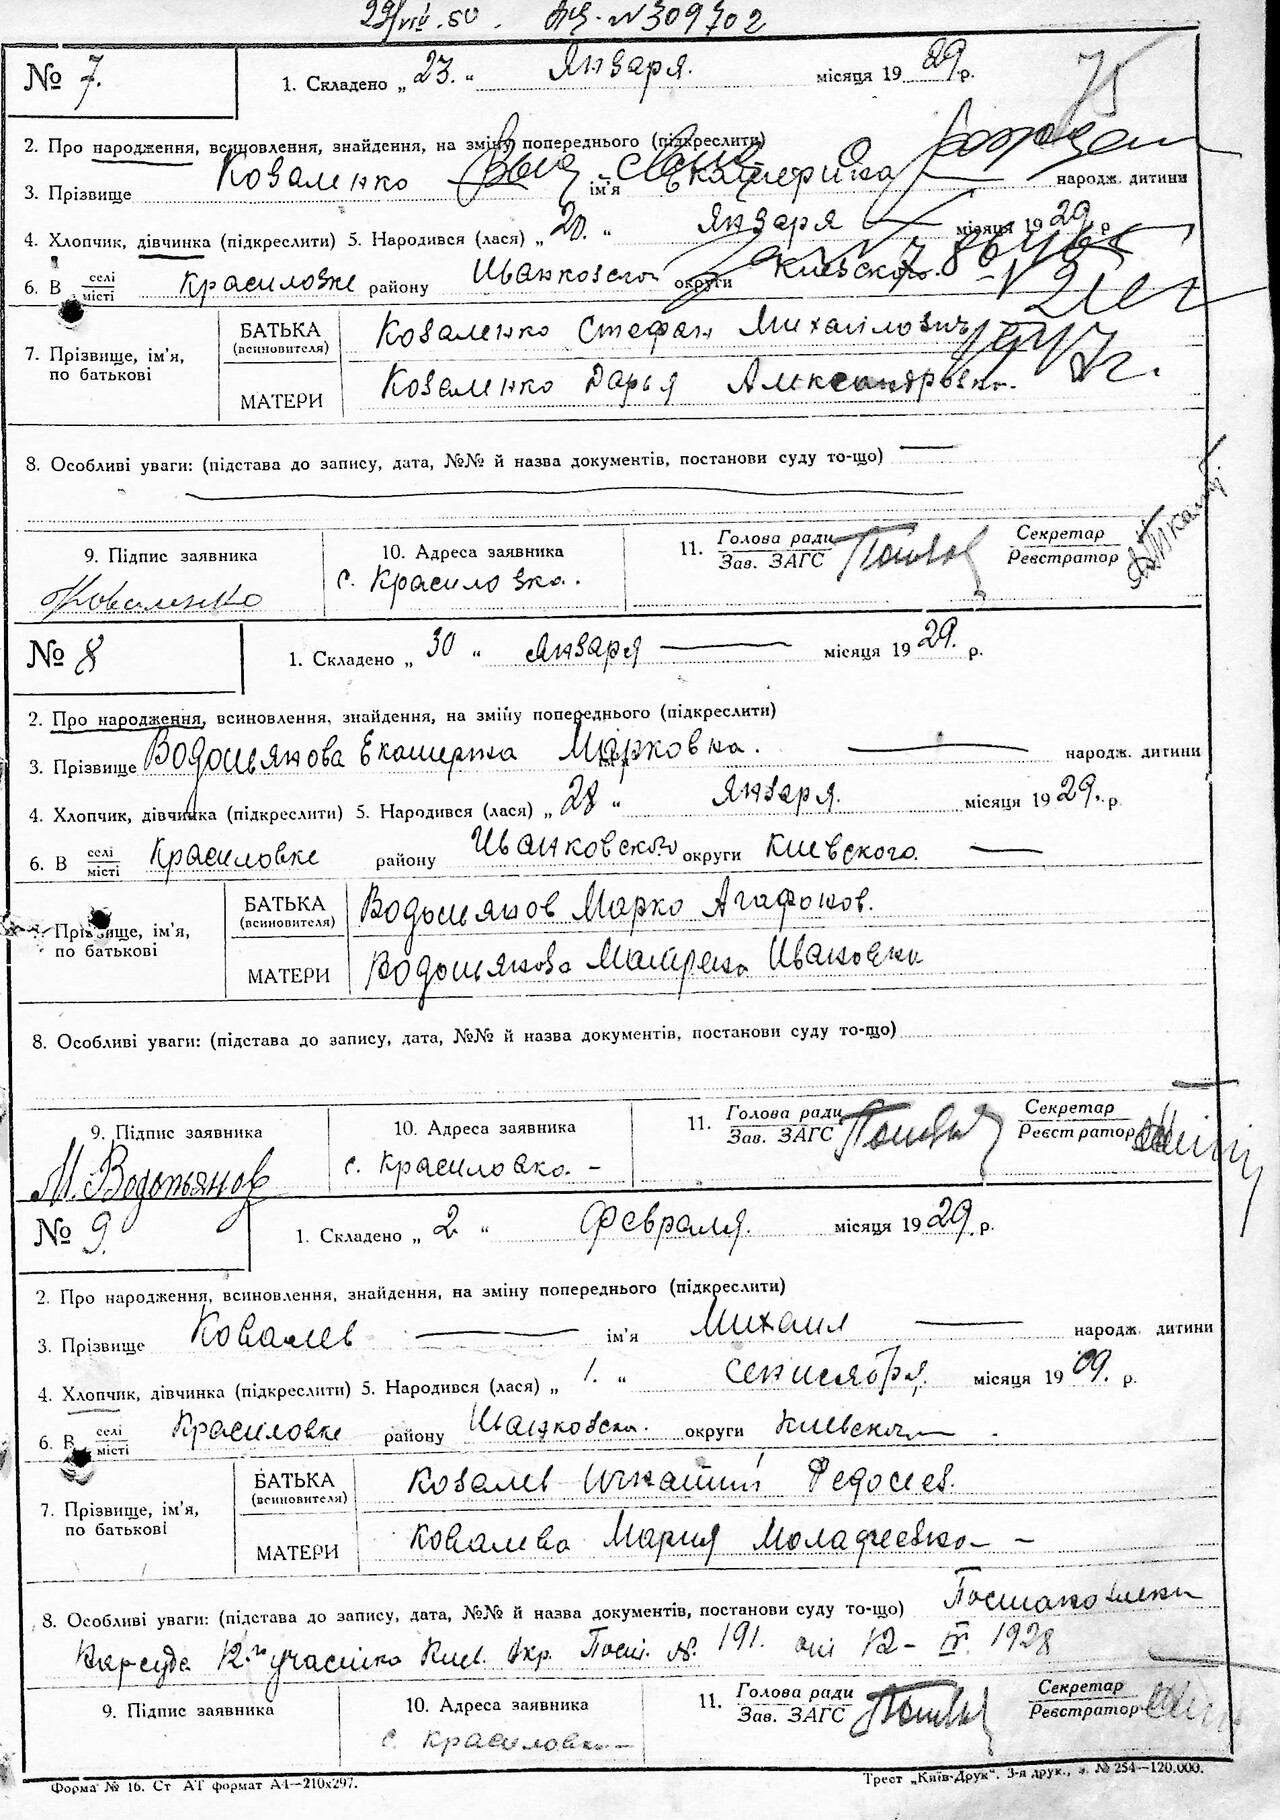 29/VIII.50. №309702
75
№ 7.
1. Складено „ 23. “ Января. місяця 1929 р.
2. Про народження, всиновлення, знайдення, на зміну попереднього (підкреслити)
3. Прізвище Коваленко ім'я Екатерина народж. дитини
4. Хлопчик, дівчинка (підкреслити) 5. Народився (лася) „ 20. “ января місяця 1929 р
6. В селі/місті Красиловке району Иванковского округи Киевского
7. Прізвище, ім'я, по батькові
БАТЬКА (всиновителя) Коваленко Стефан Михайлович
МАТЕРИ Коваленко Дарья Александровна.
8. Особливі уваги: (підстава до запису, дата, №№ й назва документів, постанови суду то-що)
9. Підпис заявника
Коваленко
10. Адреса заявника
с. Красиловка.
11. Голова ради / Зав. ЗАГС
Секретар / Реєстратор
№ 8
1. Складено „ 30 “ января місяця 1929. р.
2. Про народження, всиновлення, знайдення, на зміну попереднього (підкреслити)
3. Прізвище Водотьянова Екатерина Марковна. народж. дитини
4. Хлопчик, дівчинка (підкреслити) 5. Народився (лася) „ 28 “ января. місяця 1929. р
6. В селі/місті Красиловке району Иванковского округи Киевского.
Прізвище, ім'я, по батькові
БАТЬКА (всиновителя) Водотьянов Марко Агафонов.
МАТЕРИ Водотьянова Матрена Ивановна
8. Особливі уваги: (підстава до запису, дата, №№ й назва документів, постанови суду то-що)
9. Підпис заявника
М. Водотьянов
10. Адреса заявника
с. Красиловка. –
11. Голова ради / Зав. ЗАГС
Секретар / Реєстратор
№ 9.
1. Складено „ 2 “ Февраля. місяця 1929. р.
2. Про народження, всиновлення, знайдення, на зміну попереднього (підкреслити)
3. Прізвище Ковалев ім'я Михаил народж. дитини
4. Хлопчик, дівчинка (підкреслити) 5. Народився (лася) „ 1. “ сентября. місяця 1909. р.
6. В селі/місті Красиловке району Иванковск. округи Киевского
7. Прізвище, ім'я, по батькові
БАТЬКА (всиновителя) Ковалев Игнатий Федосеев.
МАТЕРИ Ковалева Мария
8. Особливі уваги: (підстава до запису, дата, №№ й назва документів, постанови суду то-що) Постановлени
Нарсуда 12го участка Киев. Окр. Пост. №. 191. от 12–IV. 1928
9. Підпис заявника
10. Адреса заявника
с. Красиловка –
11. Голова ради / Зав. ЗАГС
Секретар / Реєстратор
Форма № 16. Ст АТ формат А4—210х297.
Трест „Київ-Друк“. 3-я друк., з. № 254—120.000.